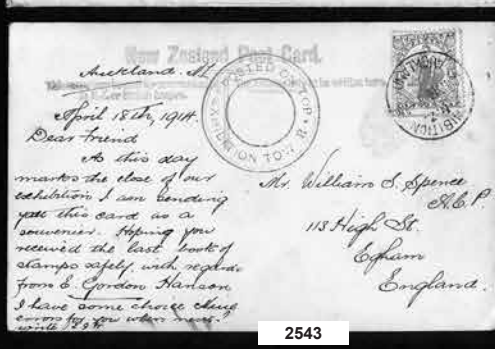 New Zealand Post Card.
Auckland, NZ
April 18th, 1914.
Dear Friend
As this day
marks the close of our
exhibition I am sending
you this card as a
souvenir. Hoping you
received the last book of
stamps safely, with regards
from E. Gordon Hansen
I have some choice
errors for you when next
write
POSTED ON TOP
TOWER
EXHIBITION
AUCKLAND
Mr. William S. Spence
113 High St.
Egham
England.
2543